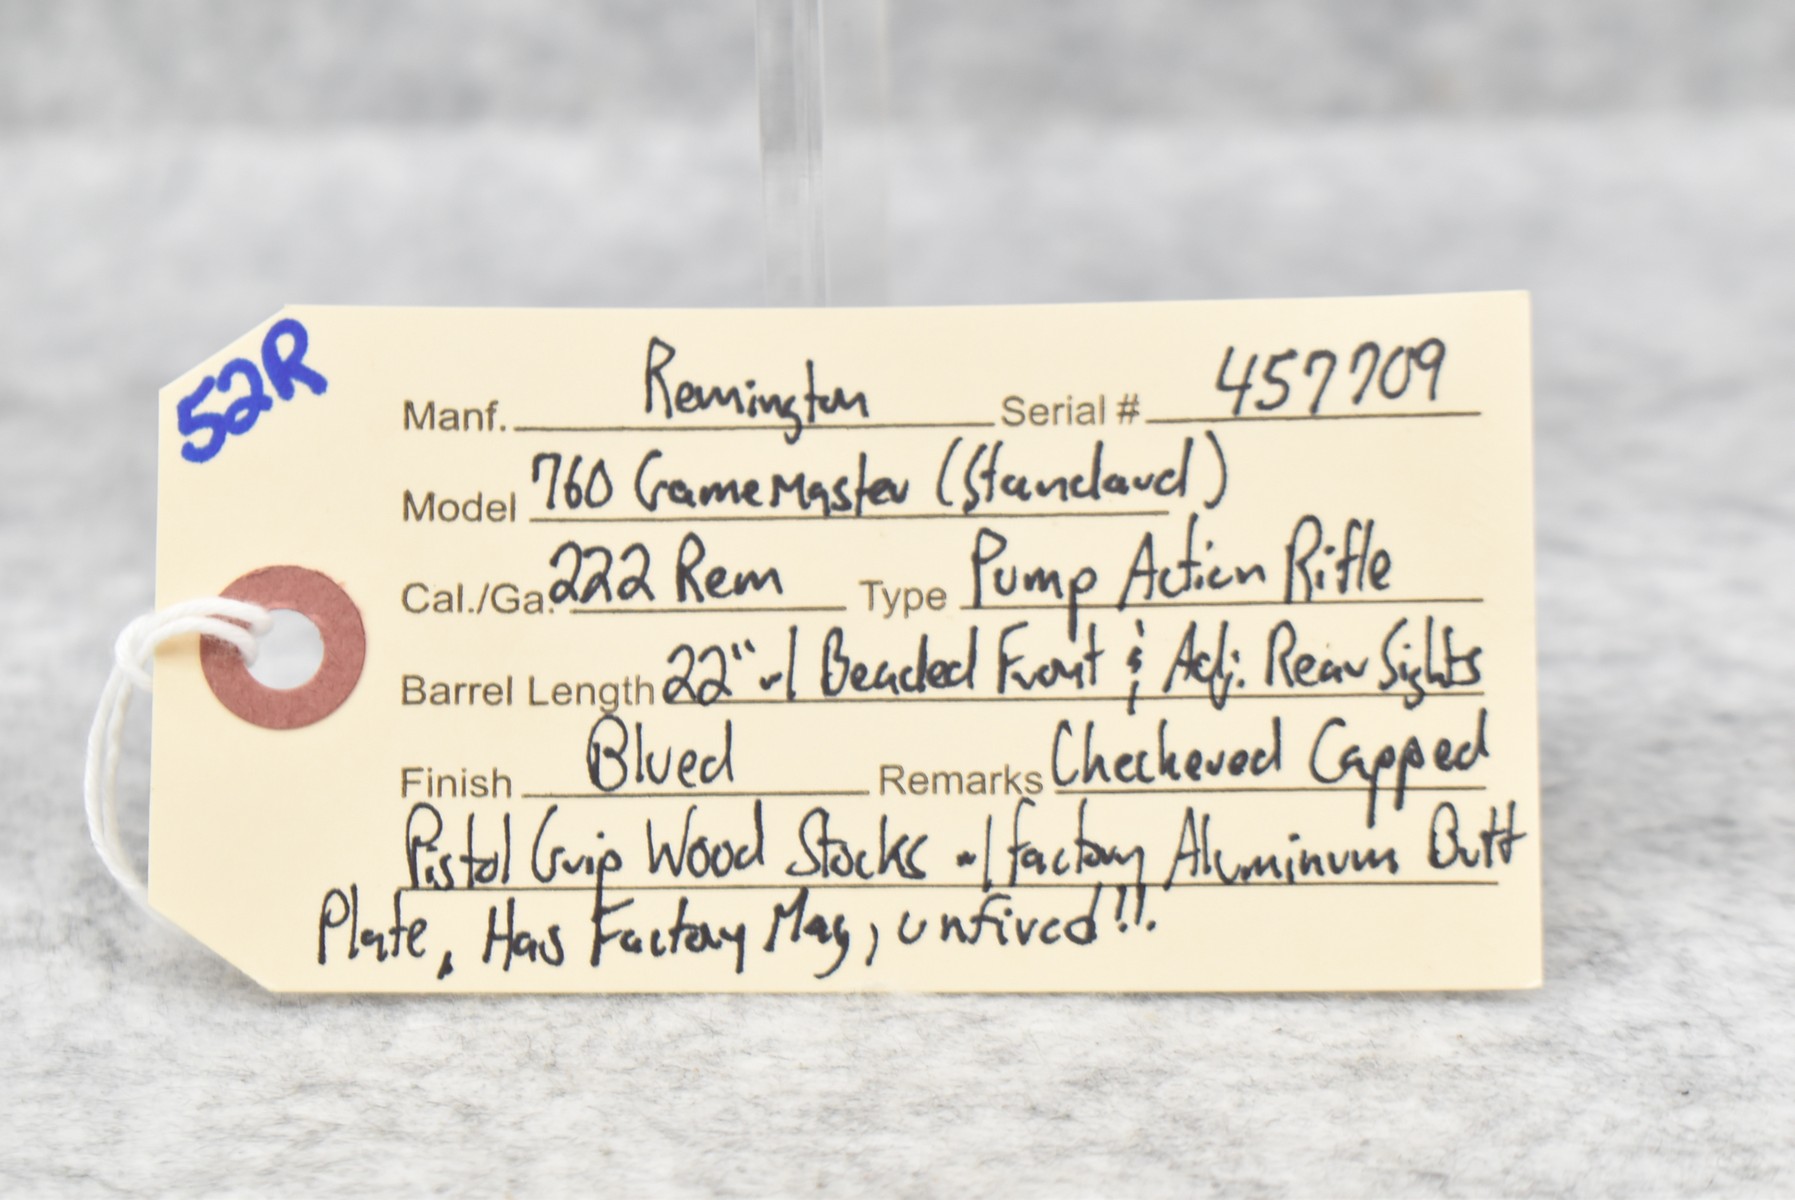 52R
Manf. Remington Serial # 457709
Model 760 GameMaster (Standard)
Cal./Ga. 222 Rem Type Pump Action Rifle
Barrel Length 22" w/ Beaded Front & Adj. Rear Sights
Finish Blued Remarks Checkered Capped
Pistol Grip Wood Stocks w/ factory Aluminum Butt
Plate, Has Factory Mag, unfired!!.